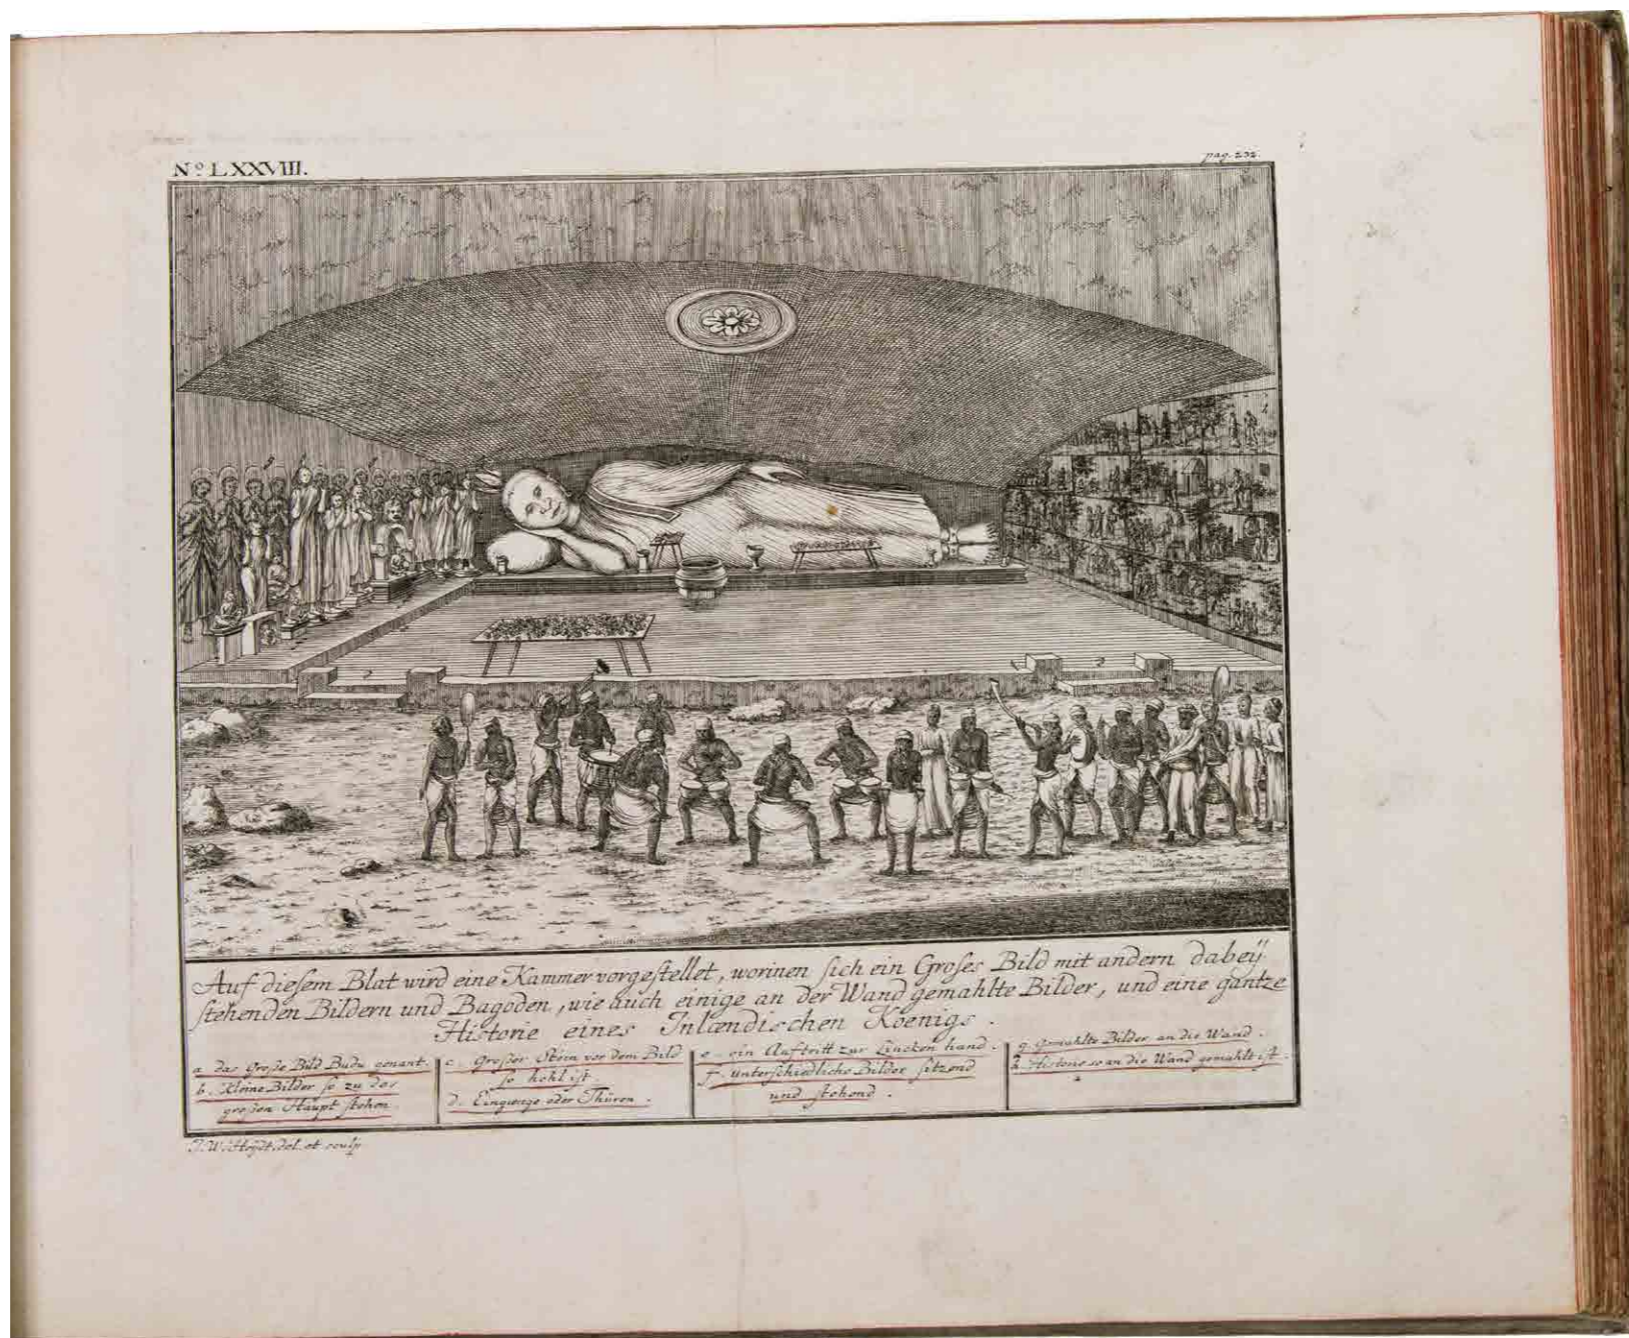 Nº LXXVIII.
pag. 232.
Auf diesem Blat wird eine Kammer vorgestellet, worinen sich ein Großes Bild mit andern dabeÿ
stehenden Bildern und Bagoden, wie auch einige an der Wand gemahlte Bilder, und eine gantze
Historie eines Inlændischen Koenigs.
a das Große Bild Budu genant.
b. Kleine Bilder so zu des
großen Haupt stehen.
c. Großer Stein vor dem Bild
so hohl ist
d. Eingænge oder Thüren.
e. ein Auftritt zur Lincken hand.
f. unterschiedliche Bilder sitzend
und stehend.
g. Gemahlte Bilder an die Wand.
h Historie so an die Wand gemahlt ist.
J. W. Heÿdt. del. et sculp.